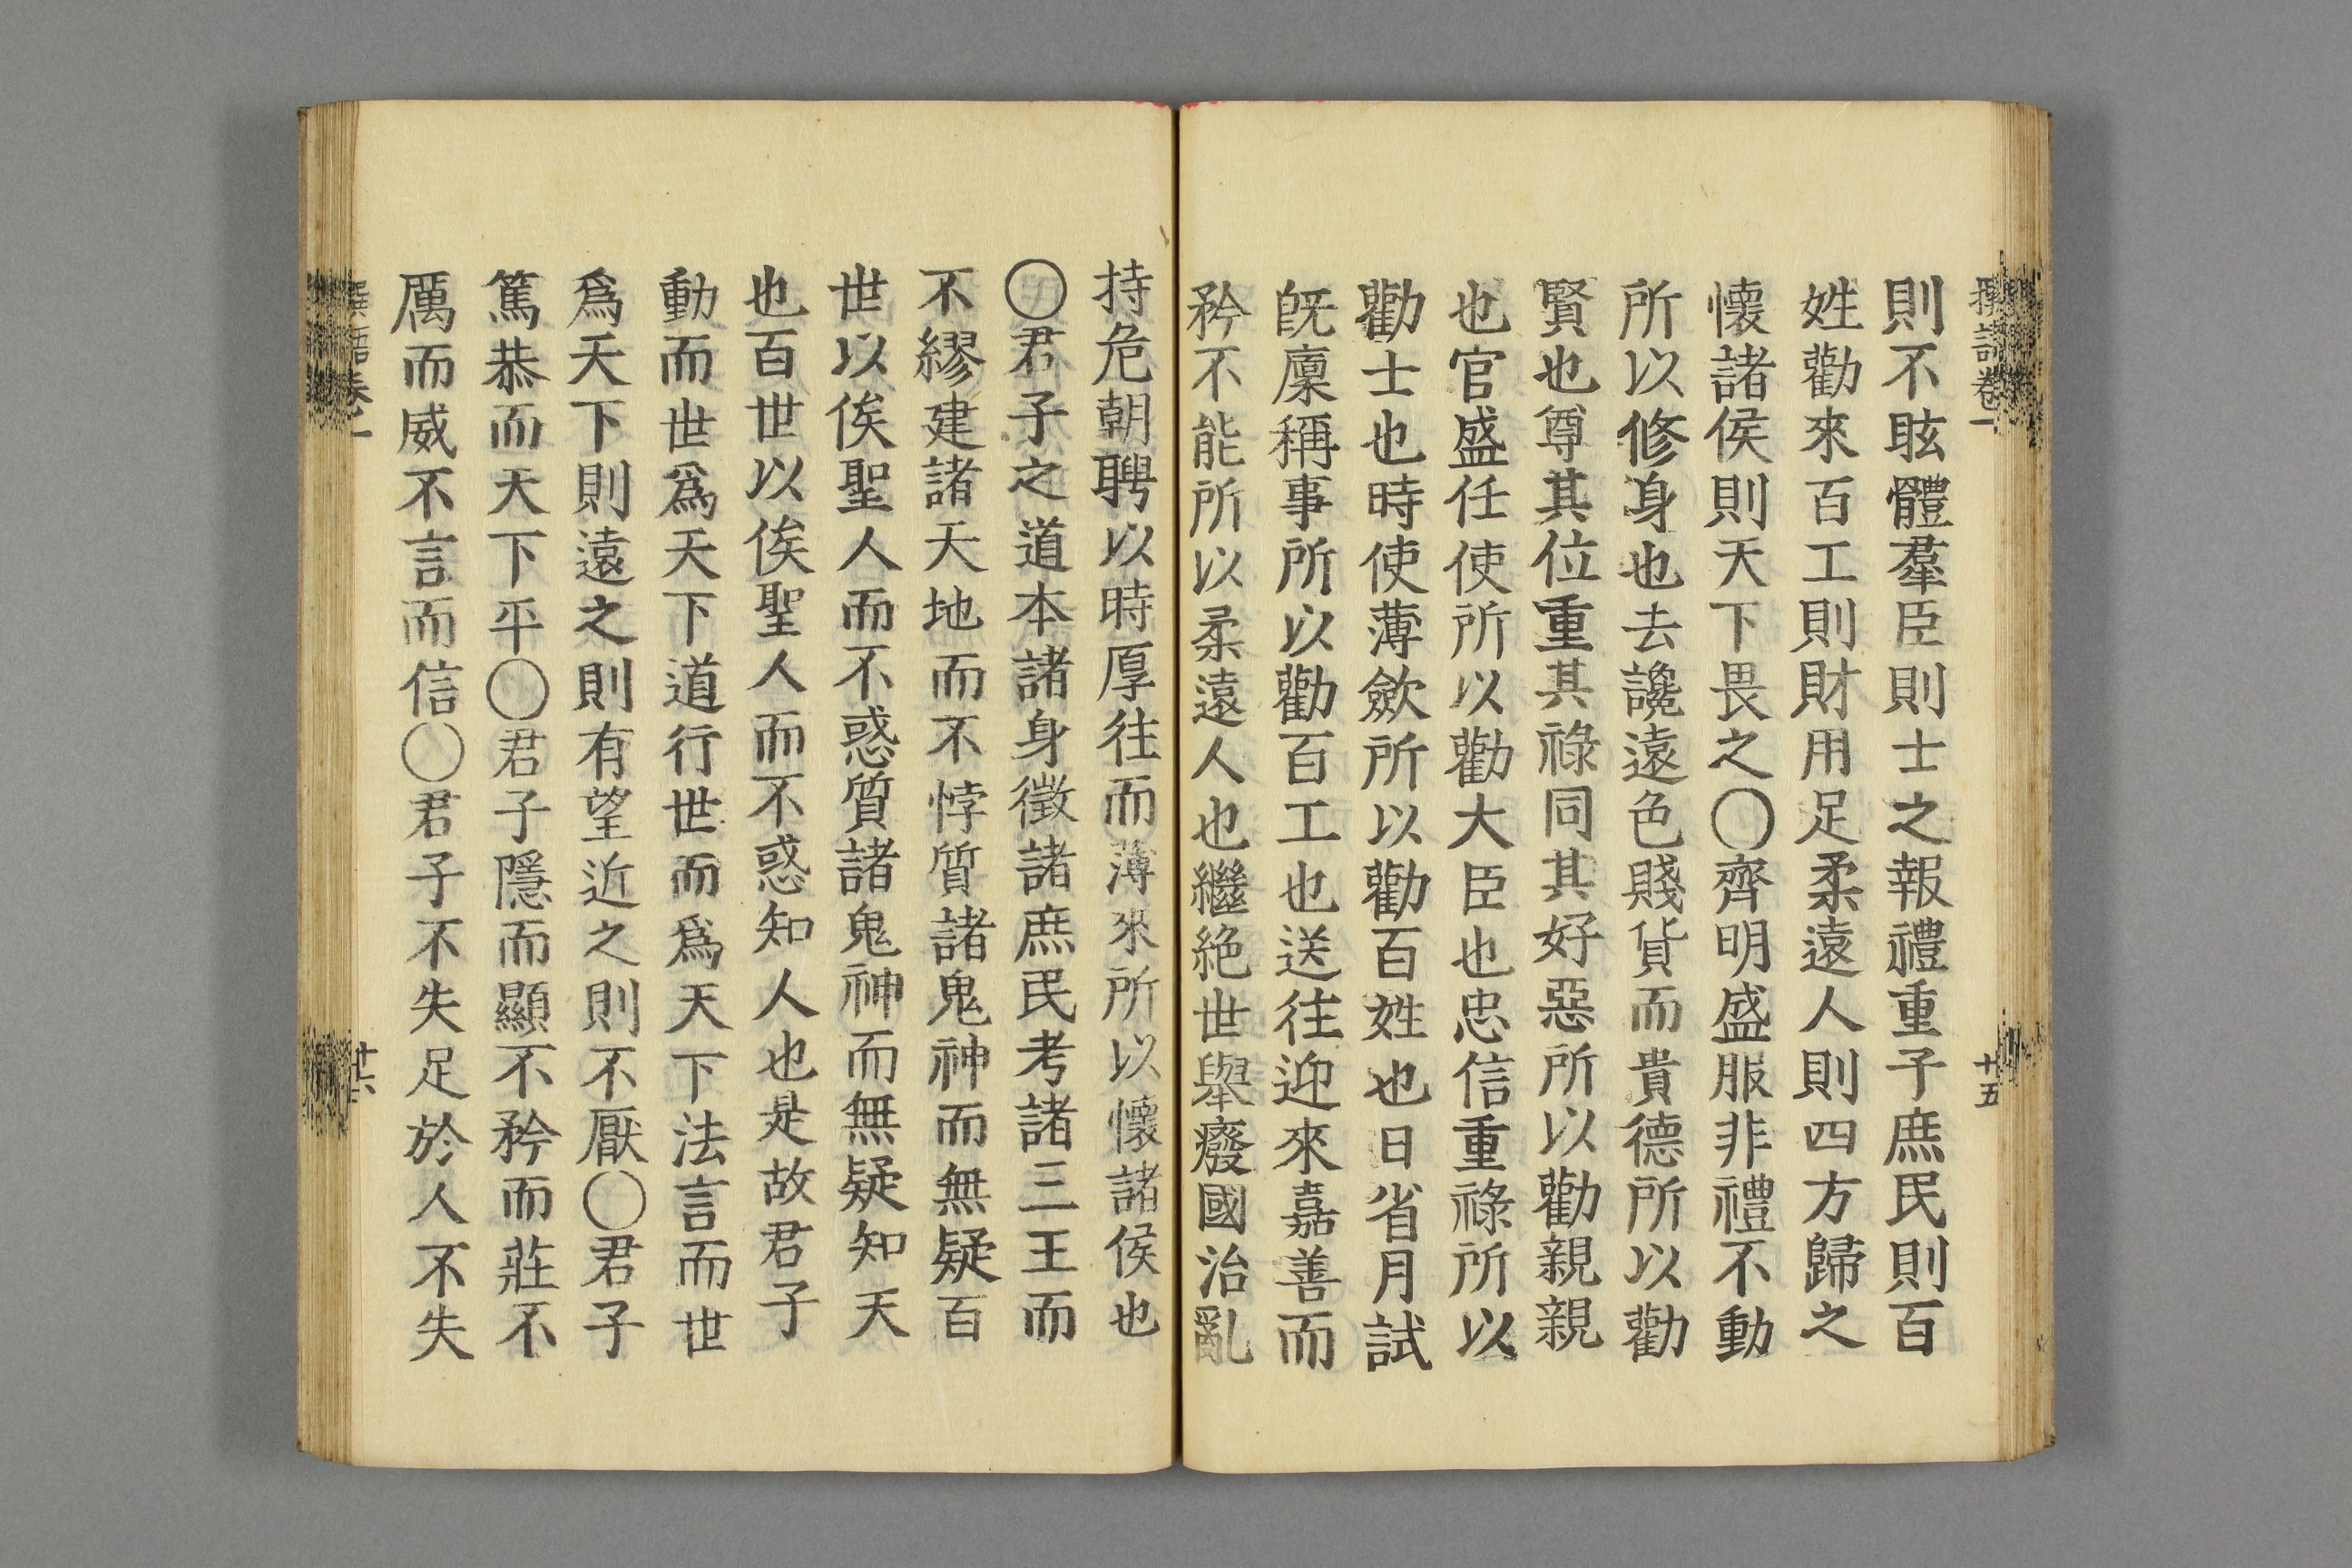 撰語卷一
十五
則不眩體羣臣則士之報禮重子庶民則百
姓勸來百工則財用足柔遠人則四方歸之
懷諸侯則天下畏之〇齊明盛服非禮不動
所以修身也去讒遠色賤貨而貴德所以勸
賢也尊其位重其祿同其好惡所以勸親親
也官盛任使所以勸大臣也忠信重祿所以
勸士也時使薄歛所以勸百姓也日省月試
旣廩稱事所以勸百工也送往迎來嘉善而
矜不能所以柔遠人也繼絶世舉癈國治亂
持危朝聘以時厚往而薄來所以懷諸侯也
〇君子之道本諸身徵諸庶民考諸三王而
不繆建諸天地而不悖質諸鬼神而無疑百
世以俟聖人而不惑質諸鬼神而無疑知天
也百世以俟聖人而不惑知人也是故君子
動而世爲天下道行世而爲天下法言而世
爲天下則遠之則有望近之則不厭〇君子
篤恭而天下平〇君子隱而顯不矜而莊不
厲而威不言而信〇君子不失足於人不失
撰語卷一